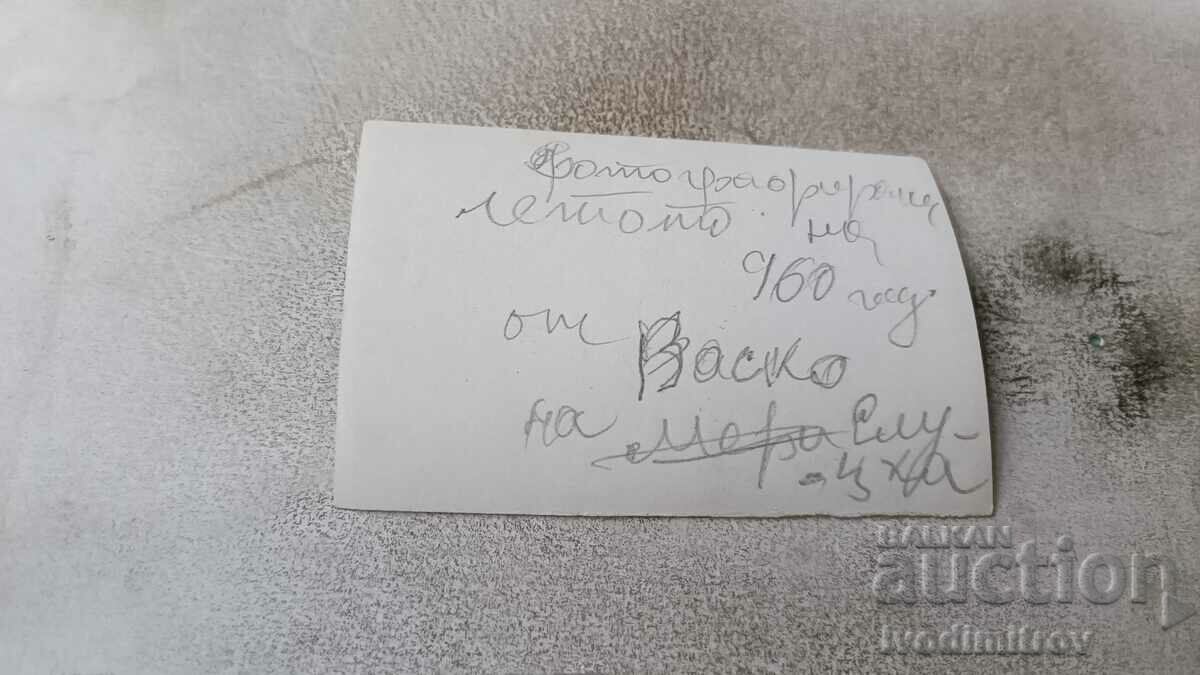 фотографирани
летото на
960 год.
от Васко
на Мери Слу-
BALKAN
auction
ivodimitrov